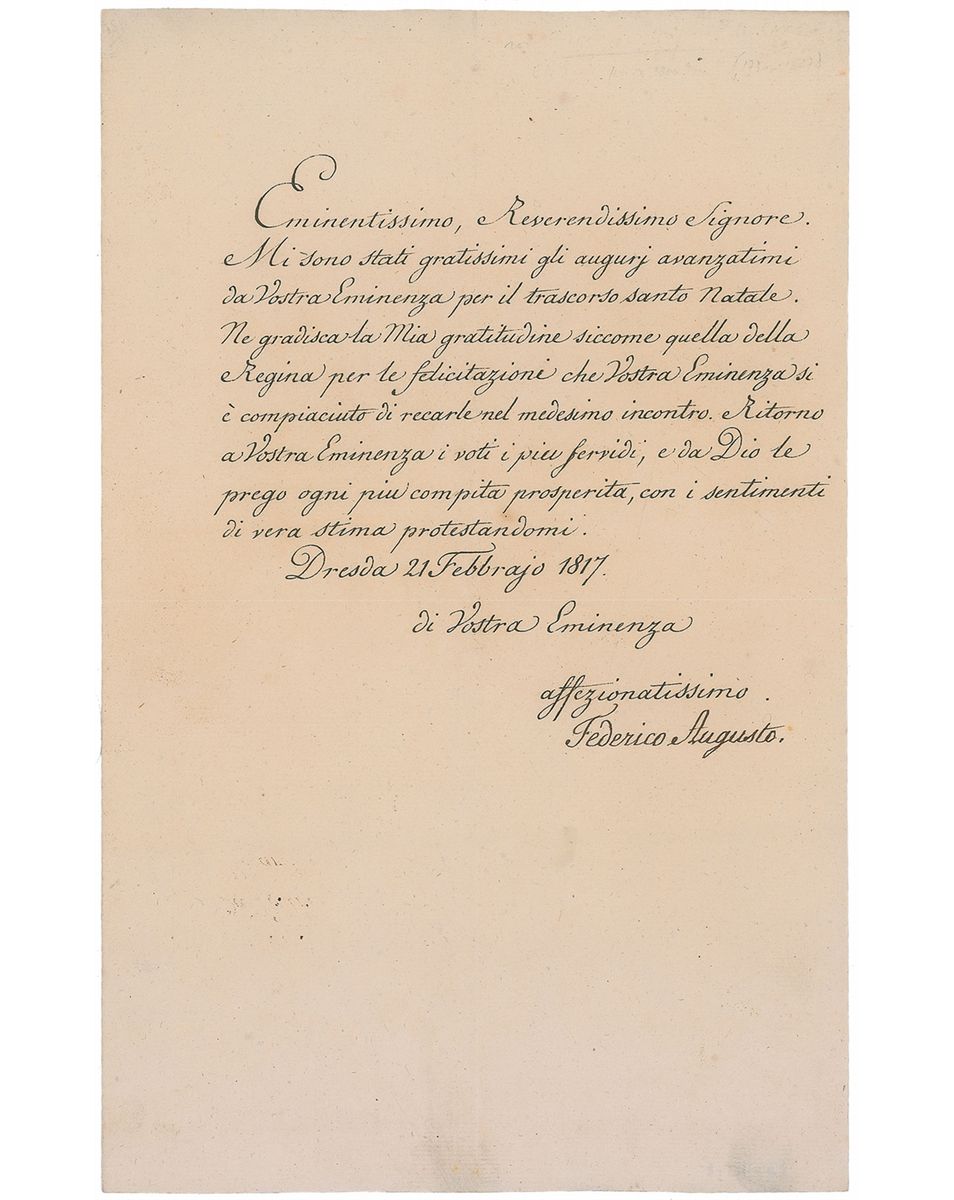 Eminentissimo, e Reverendissimo Signore.
Mi sono stati gratissimi gli augurj avanzatimi
da Vostra Eminenza per il trascorso santo Natale.
Ne gradisca la Mia gratitudine siccome quella della
Regina per le felicitazioni che Vostra Eminenza si
è compiaciuto di recarle nel medesimo incontro. Ritorno
a Vostra Eminenza i voti i piu fervidi, e da Dio le
prego ogni piu compita prosperita, con i sentimenti
di vera stima protestandomi.
Dresda 21 Febbrajo 1817.
di Vostra Eminenza
affezionatissimo.
Federico Augusto.